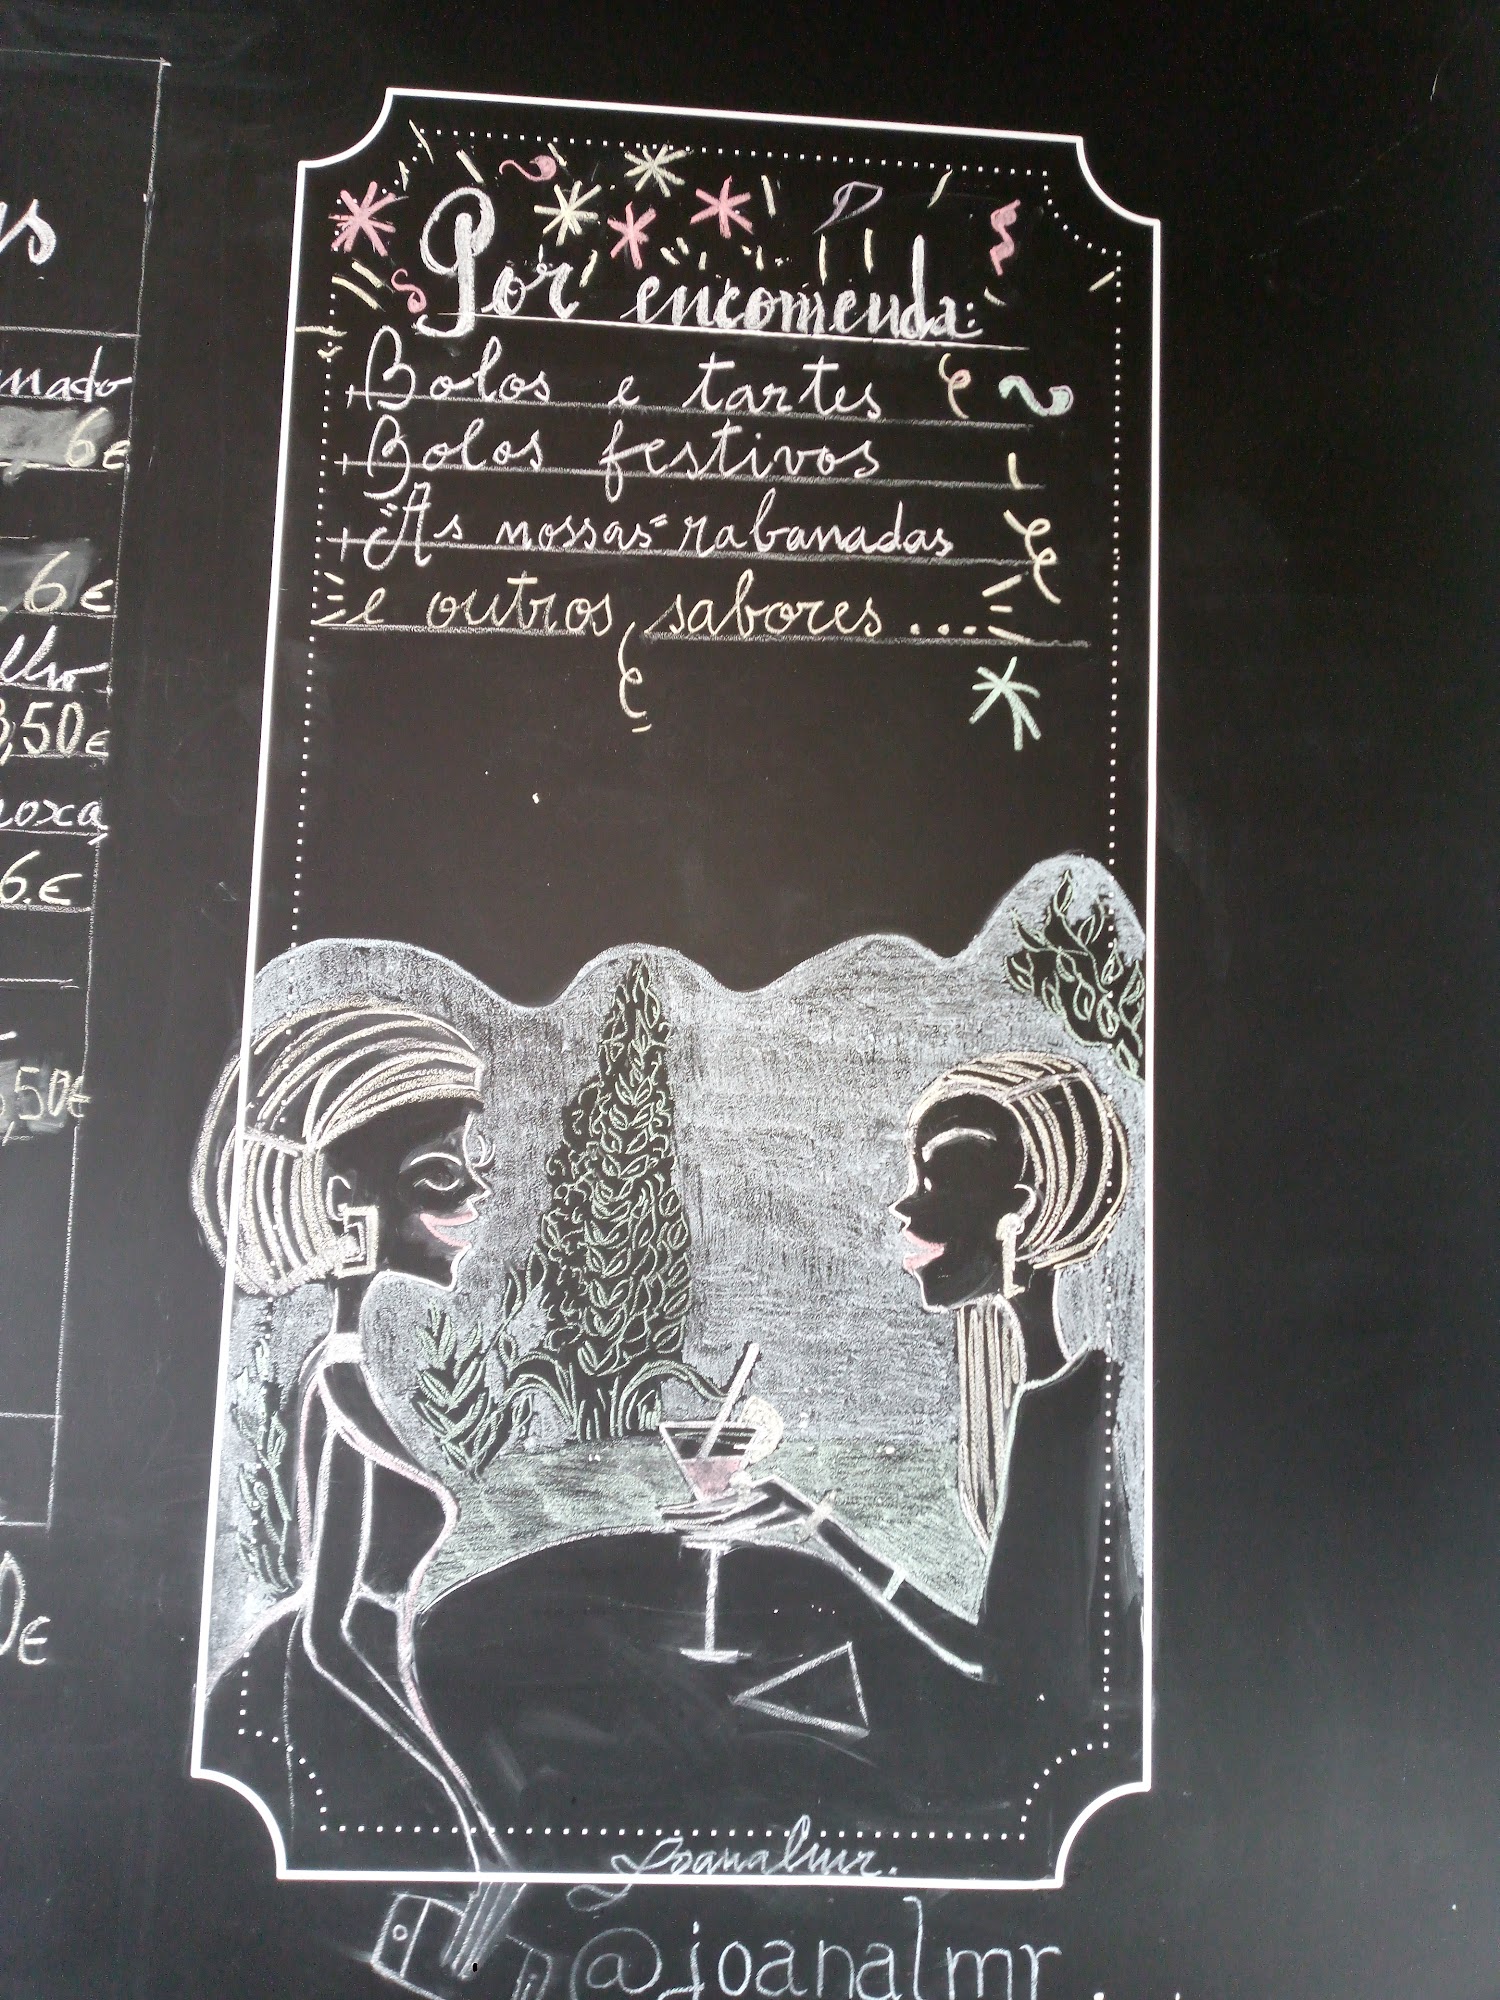 mado
6€
6€
lho
3,50€
roxa
6.€
,50€
0€
Por encomenda:
+ Bolos e tartes
+ Bolos festivos
+ "As nossas" rabanadas
e outros sabores...
Joanalmr.
@joanalmr